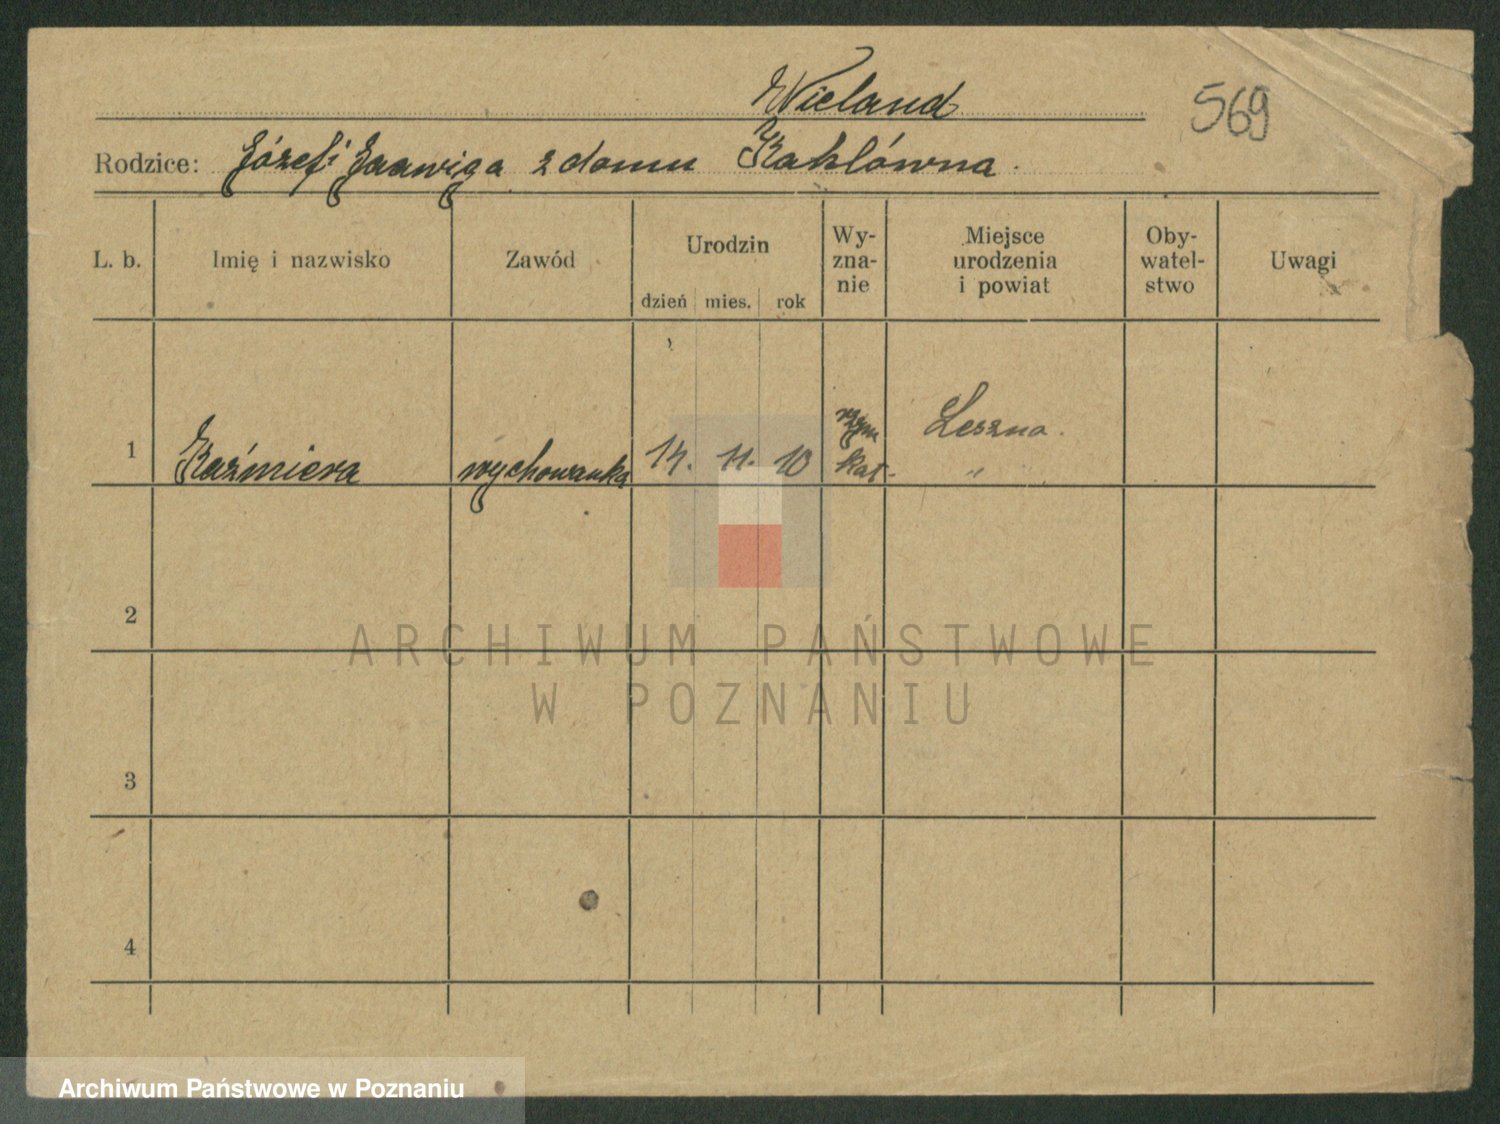 Wieland
569
Rodzice: Józef i Jadwiga z domu Kaklówna.
L. b. Imię i nazwisko Zawód Urodzin dzień mies. rok Wy-zna-nie Miejsce urodzenia i powiat Oby-watel-stwo Uwagi
1 Kaźmiera wychowanka 14. 11. 10 rzym kat. Leszno. "
2
3
4
ARCHIWUM PAŃSTWOWE
W POZNANIU
Archiwum Państwowe w Poznaniu